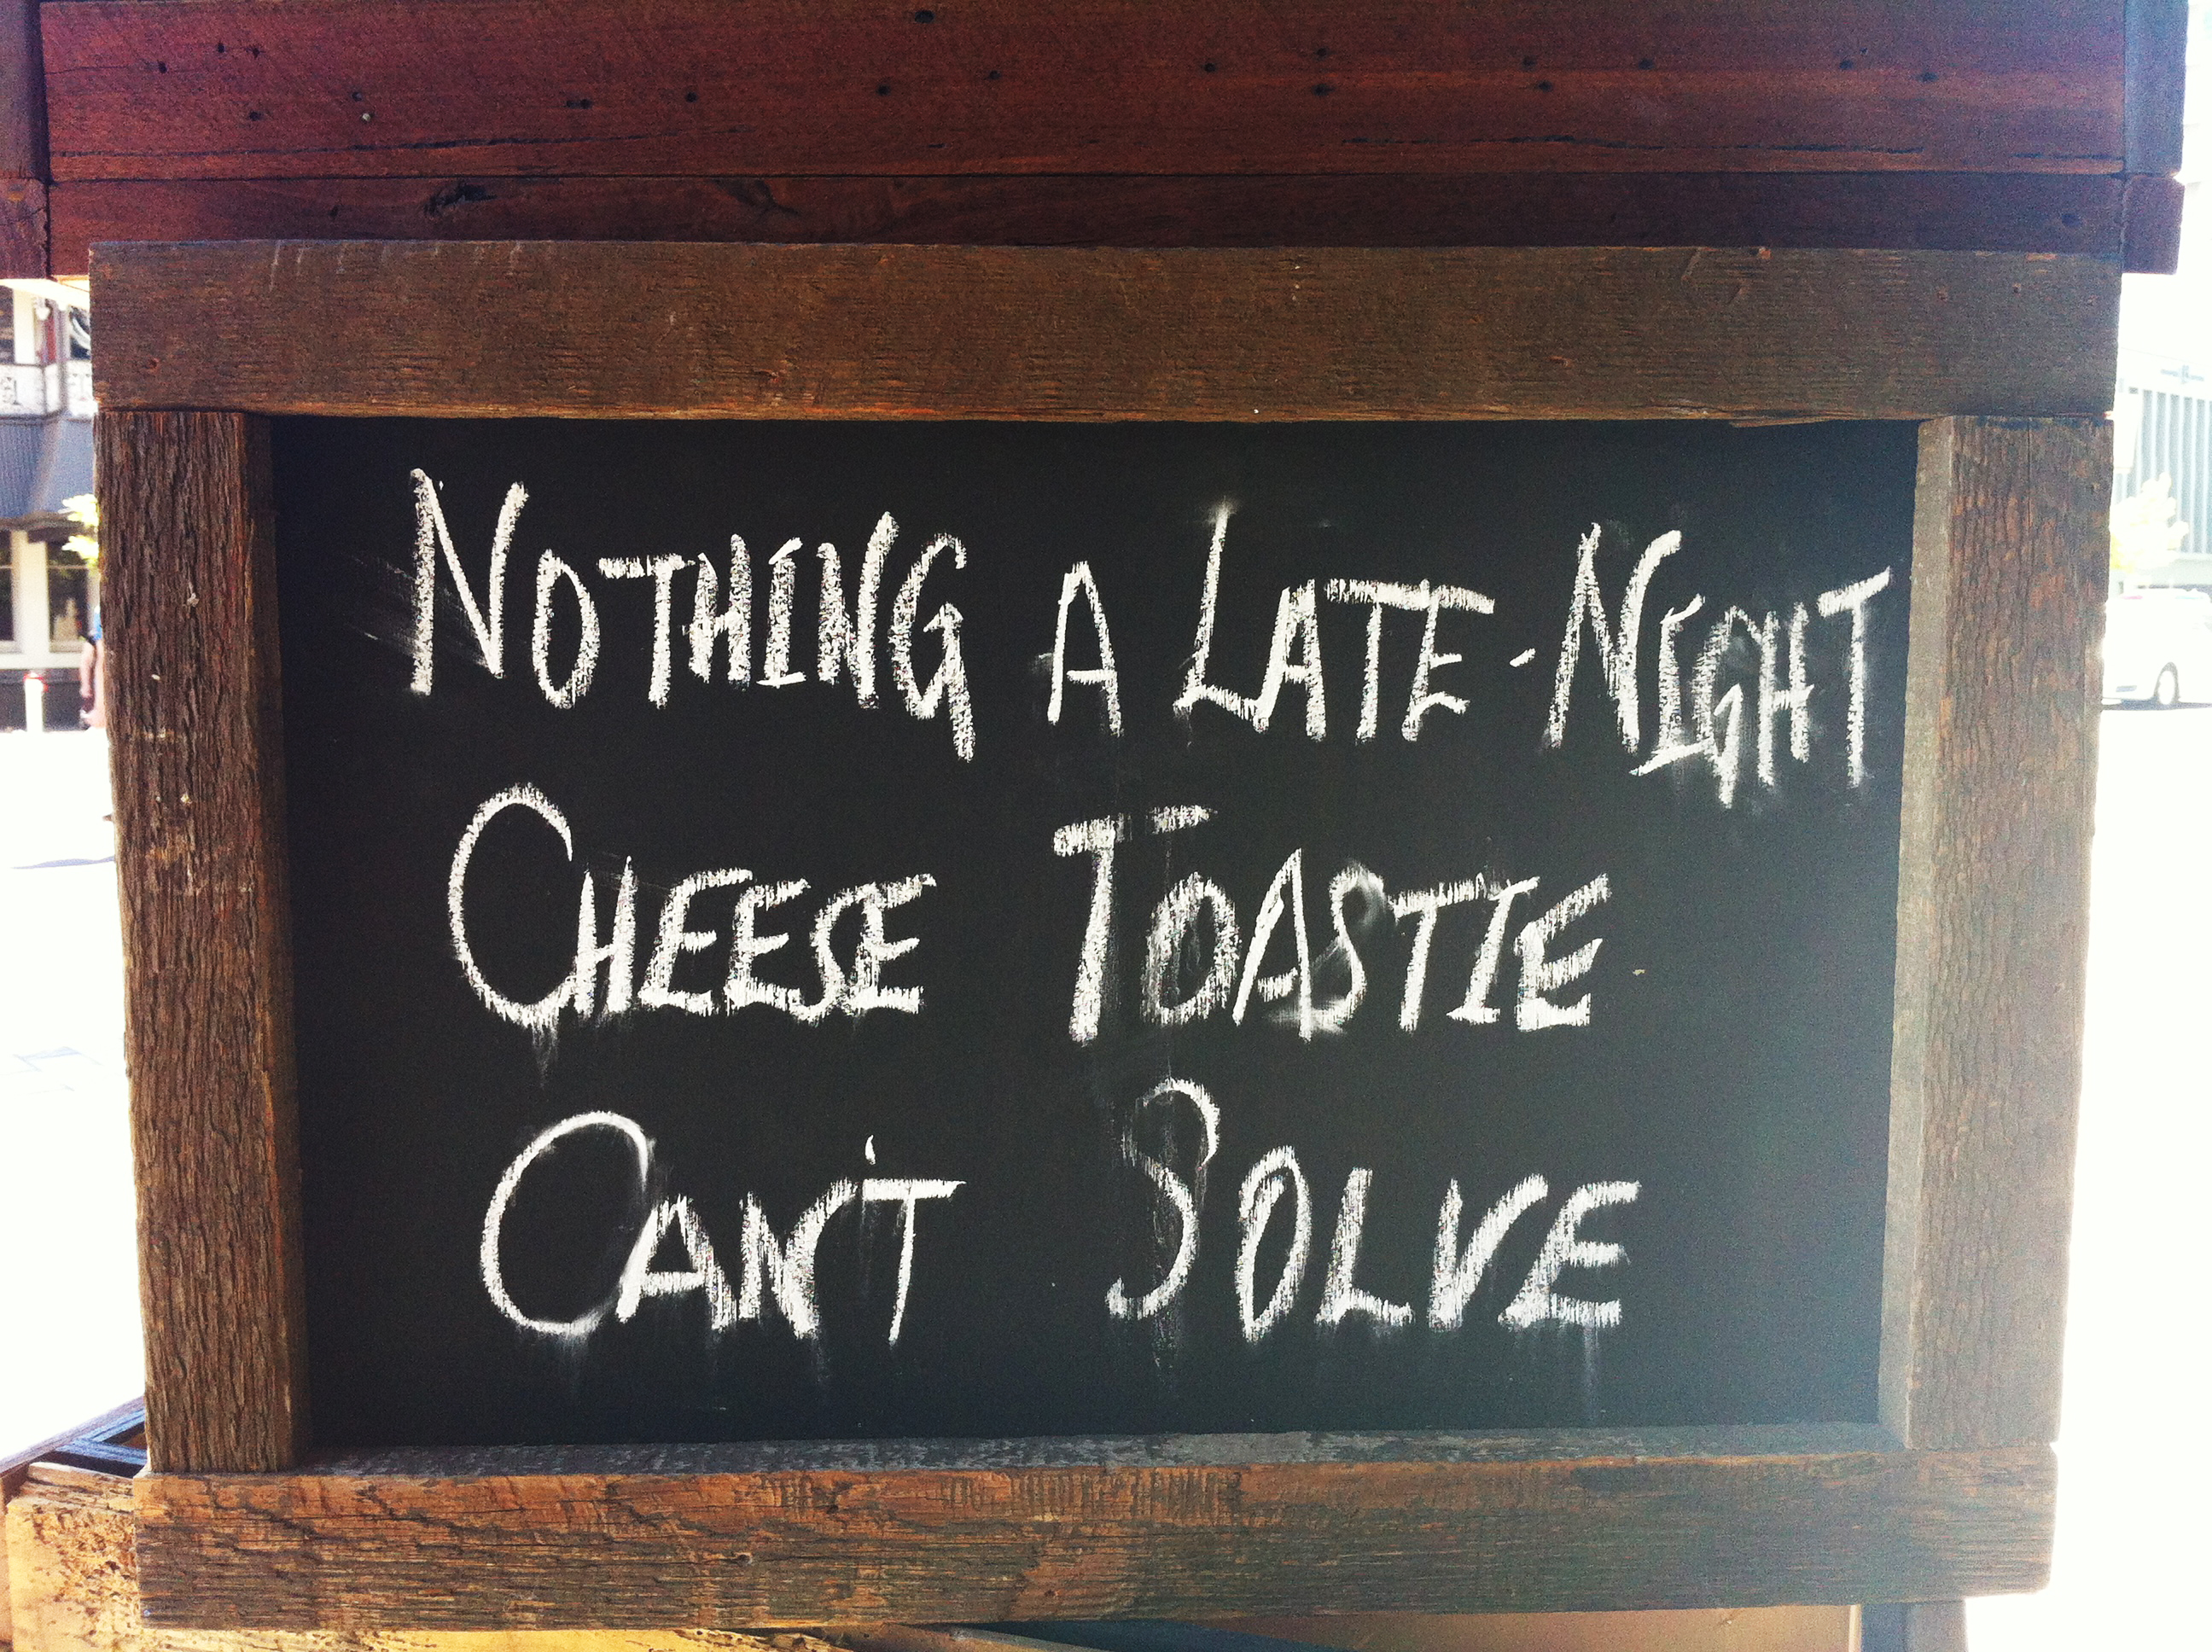 NOTHING A LATE-NIGHT
CHEESE TOASTIE
CAN'T SOLVE